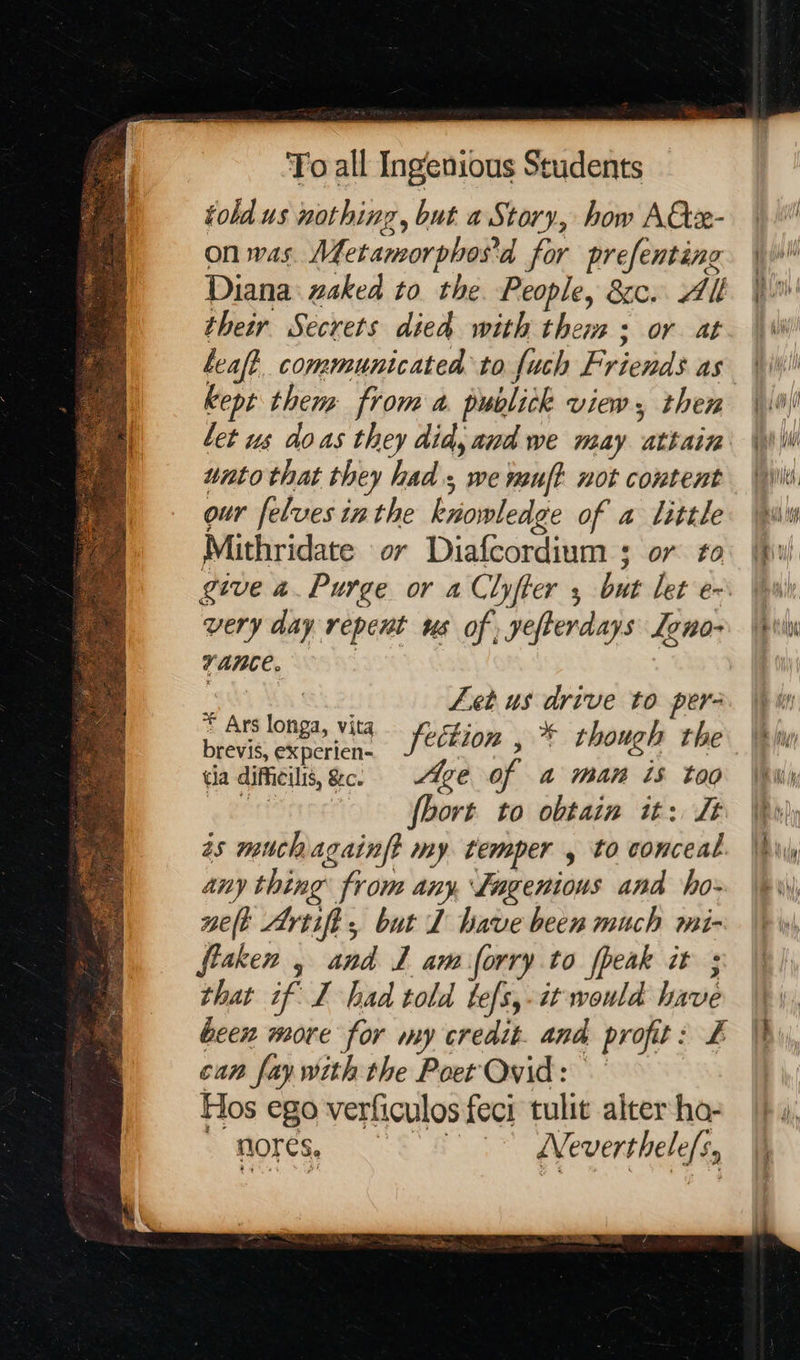 To all Ingenious Students
told us nothing, but a Story, how Actæ-
on was Metamorphos'd for preſenting
Diana naked to the People, &c. All
their Secrets died with them ; or at
leaſt communicated to ſuch Friends as
kept them from a publick view ; then
let us do as they did, and we may attain
unto that they had ; we muſt not content
our ſelves in the knowledge of a little
Mithridate or Diaſcordium ; or to
give a Purge or a Clyſter ; but let e-
very day repent us of yeſterdays Igno-
rance.
Let us drive to per-
* Ars longa, vita
fection , * though the
brevis, experien-
tia difficilis, &c.
Age of a man is too
ſhort to obtain it : It
is much againſt my temper , to conceal
any thing from any Ingenious and ho-
neſt Artiſt ; but I have been much mi-
ſtaken , and I am ſorry to ſpeak it ;
that if I had told leſs, it would have
been more for my credit and profit : I
can ſay with the Poet Ovid :
Hos ego verſiculos feci tulit alter ho-
nores.
Nevertheleſs,